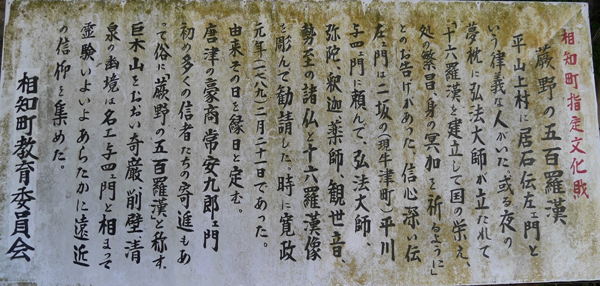 相知町指定文化財
蕨野の五百羅漢
平山上村に居石伝左ェ門と
いう律義な人がいた或る夜の
夢枕に弘法大師が立たれて
「十六羅漢を建立して国の栄え、
処の繁昌、身の冥加を祈るように」
とのお告げがあった。信心深い伝
左ェ門は二坂の(現牛津町)平川
与四ェ門に頼んで、弘法大師、
弥陀、釈迦、薬師、観世音、
勢至の諸仏と十六羅漢像
を彫んで勧請した。時に寛政
元年(一七八九)二月二十日であった。
由来その日を縁日と定む。
唐津の豪商常安九郎ェ門
初め多くの信者たちの寄進もあ
って俗に「蕨野の五百羅漢」と称す。
巨木山をおおい奇巌削壁、清
泉の幽境は名工与四ェ門と相まって
霊験いよいよあらたかに遠近
の信仰を集めた。
相知町教育委員会